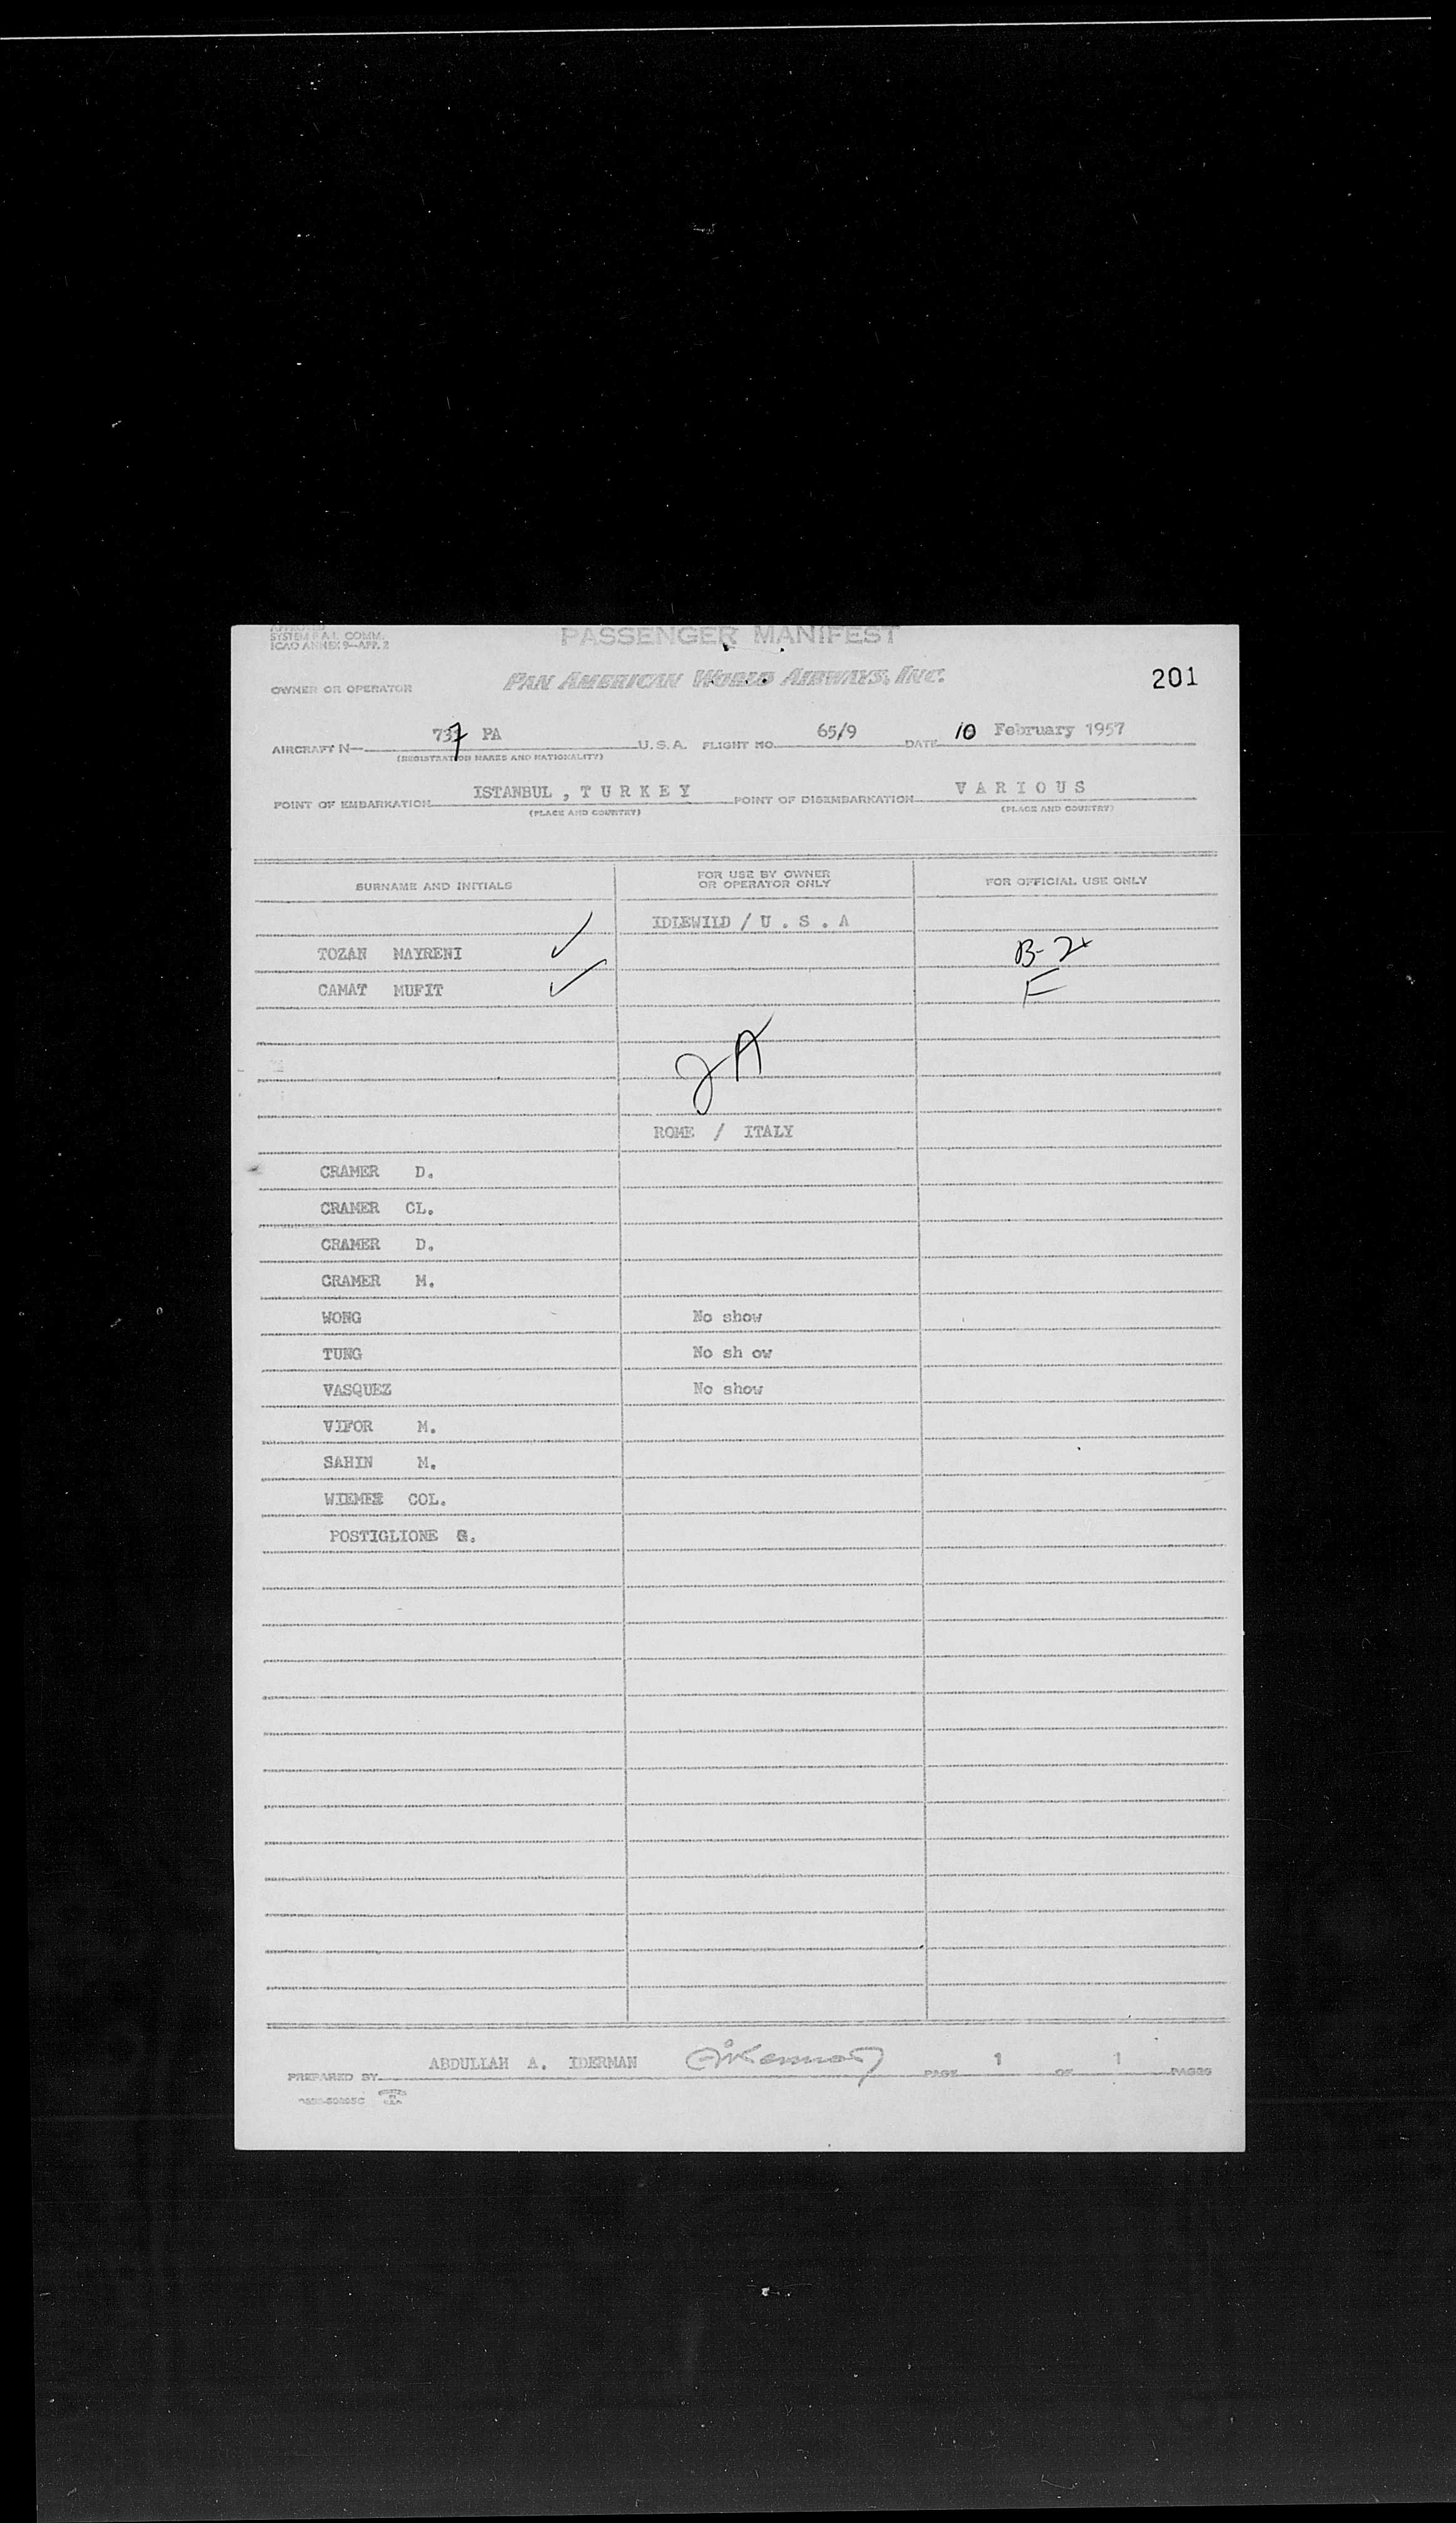 APPROVED
SYSTEM F A L COMM.
ICAO ANNEX 9—APP. 2
PASSENGER MANIFEST
OWNER OR OPERATOR PAN AMERICAN WORLD AIRWAYS, INC. 201
AIRCRAFT N— 737 PA U.S.A. FLIGHT NO. 65/9 DATE 10 February 1957
(REGISTRATION MARKS AND NATIONALITY)
POINT OF EMBARKATION ISTANBUL , T U R K E Y POINT OF DISEMBARKATION V A R I O U S
(PLACE AND COUNTRY) (PLACE AND COUNTRY)
SURNAME AND INITIALS FOR USE BY OWNER OR OPERATOR ONLY FOR OFFICIAL USE ONLY
IDLEWILD / U . S . A
TOZAN MAYRENI ✓ B-2
CAMAT MUFIT ✓ F
2A
ROME / ITALY
CRAMER D.
CRAMER CL.
CRAMER D.
CRAMER M.
WONG No show
TUNG No sh ow
VASQUEZ No show
VIFOR M.
SAHIN M.
WIEMER COL.
POSTIGLIONE G.
PREPARED BY ABDULLAH A. IDERMAN PAGE 1 OF 1 PAGES